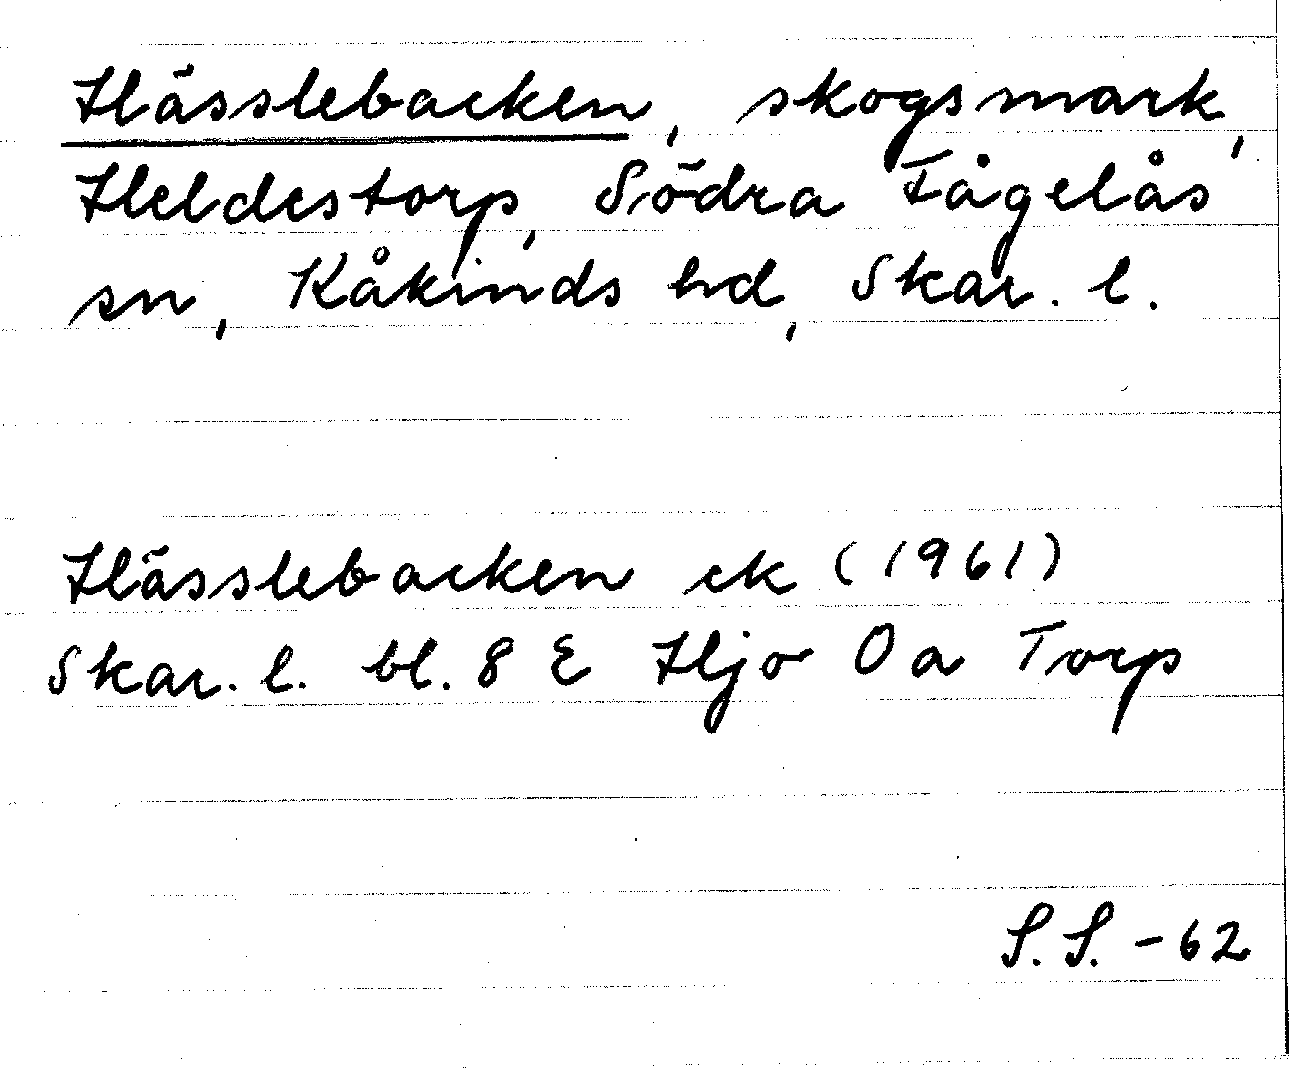 Hässlebacken, skogsmark,
Heldestorp, Södra Fågelås
sn, Kåkinds hd, Skar. l.
Hässlebacken ek (1961)
Skar. l. bl. 8 E Hjo 0a Torp
S.S. -62